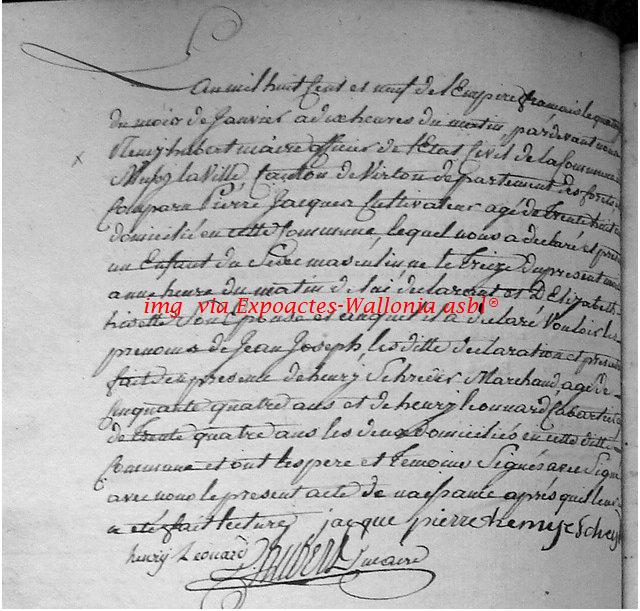 L'an mil huit Cent et neuf de l'Empire français le
du mois de Janvier a dix heures du matin, pardevant nous
Remy hubert maire officier de l'Etat Civil de la Commune de
Mussy la Ville Canton de Virton departement des forets
Comparu Pierre Jacques Cultivateur agé de trente huit ans
domicilié en cette Commune, lequel nous a declaré et presenté
un Enfant du Sexe masculin, né le treize du present mois
a une heure du matin de lui declarant et D'Elizabeth
hisette Son Epouse et auquel il a declaré Vouloir les
img via Expoactes-Wallonia asbl®
prenoms de Jean Joseph, les ditte declaration et presentation
fait en presence de henry Schreder Marchand agé de
cinquante quatre ans et de henry leonnard Cabartier
de trente quatre ans les deux domiciliés en cette ditte
Commune et ont les pere et temoins Signés avec
avec nous le present acte de naissance après quil leur
a eté fait lecture, jacque pierre
henry Leonard R. Hubert maire